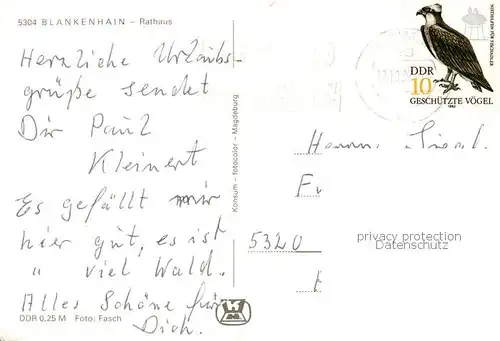 5304 BLANKENHAIN – Rathaus
Herzliche Urlaubs-
grüße sendet
Dir Paul
Kleinert
Es gefällt mir
hier gut, es ist
" viel Wald.
Alles Schöne für
Dich.
DDR 0,25 M Foto: Fasch
Konsum – fotocolor – Magdeburg
DDR
10
GESCHÜTZTE VÖGEL
1982
Herrn
5320
privacy protection
Datenschutz